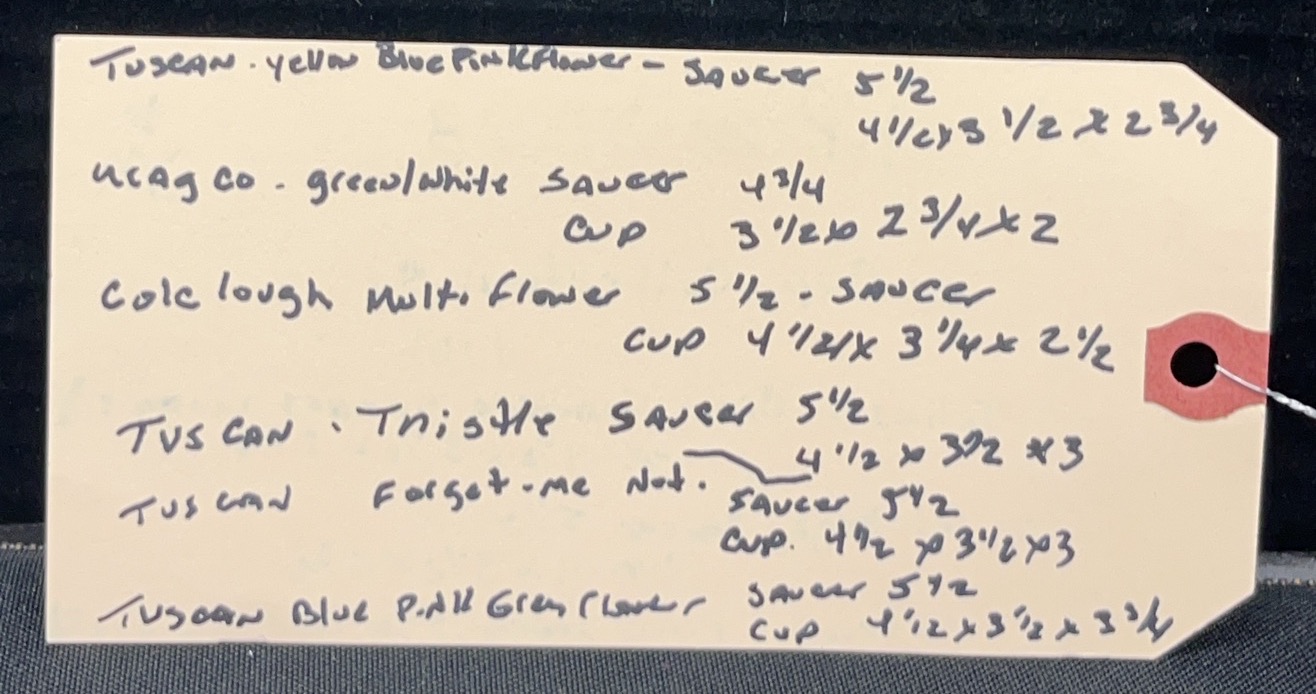 TUSCAN - yellow Blue Pink Flower - SAUCER 5 1/2
4 1/2 x 3 1/2 x 2 3/4
UCAGCO - green/white SAUCER 4 3/4
CUP 3 1/2 x 2 3/4 x 2
Colclough Multi Flower 5 1/2 - SAUCER
CUP 4 1/2 x 3 1/4 x 2 1/2
TUSCAN - Thistle SAUCER 5 1/2
4 1/2 x 3 1/2 x 3
TUSCAN Forget-me Not. SAUCER 5 1/2
CUP. 4 1/2 x 3 1/2 x 3
TUSCAN Blue Pink Grey Flower SAUCER 5 1/2
CUP 4 1/2 x 3 1/2 x 3 3/4